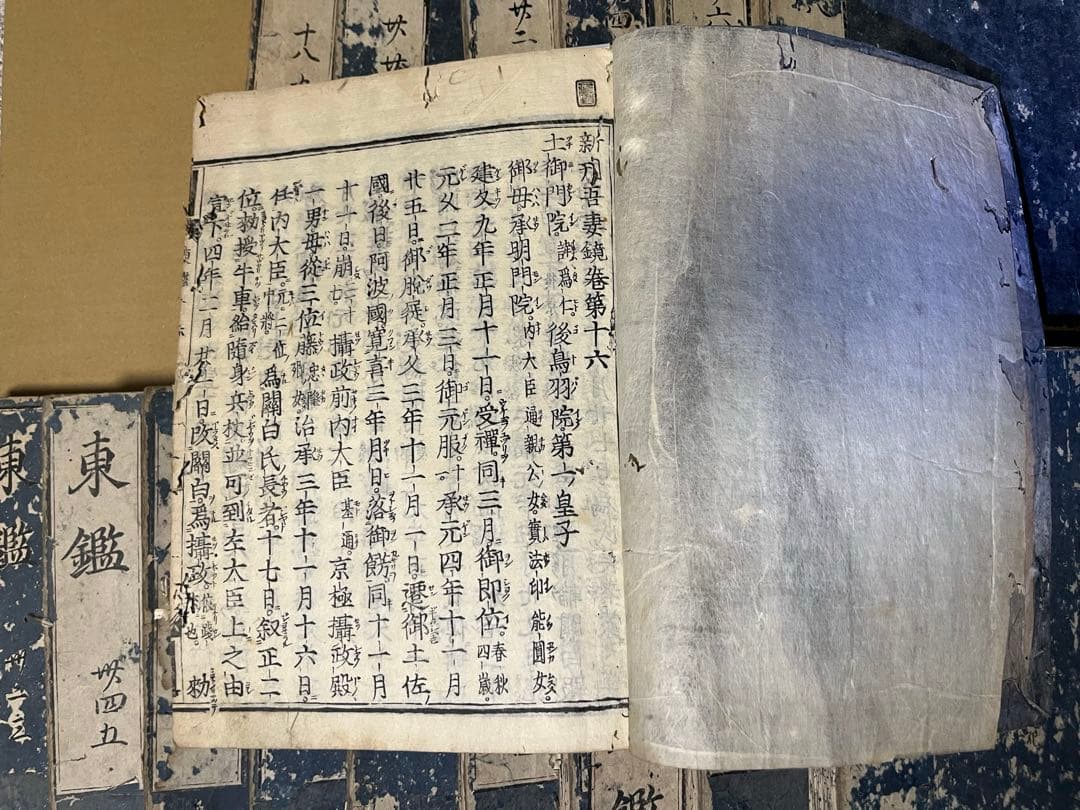 新刋吾妻鏡卷第十六
土御門院諱爲仁後鳥羽院第一皇子
御母承明門院内大臣通親公女實法印能圓女
建久九年正月十一日受禪同三月御即位春秋四歳
元久二年正月三日御元服十一承元四年十一月
廿五日御脱屣承久三年十一月一日遷御土佐
國後日阿波國寛喜三年月日落御餝同十一月
十一日崩 攝政前内大臣基通京極攝政殿
一男母從三位藤忠隆女治承三年十一月十六日
任内大臣元二位中將爲關白氏長者十七日叙正二
位勅授牛車給隨身兵杖並可到左大臣上之由
宣下四年二月廿一日改關白爲攝政依踐祚也 勅
東鑑
卅四五
東鑑
十八
廿二
六
鑑